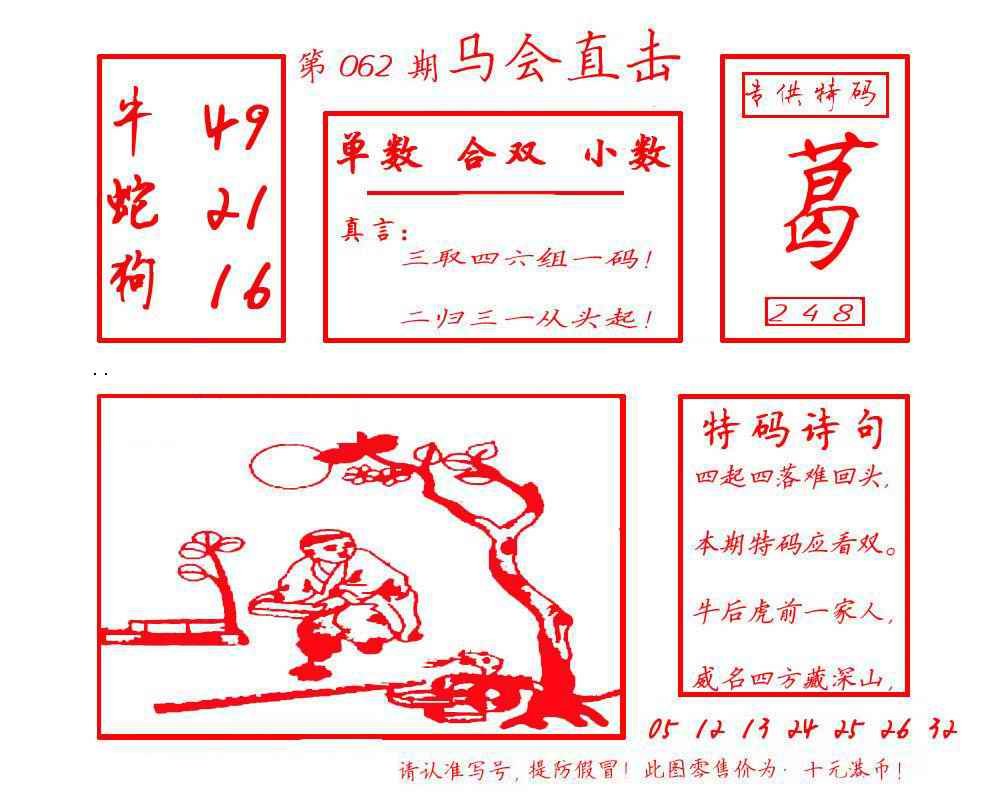 第 062 期 马会直击
牛 49
蛇 21
狗 16
单数 合双 小数
真言：
三取四六组一码！
二归三一从头起！
专供特码
葛
2 4 8
特码诗句
四起四落难回头，
本期特码应看双。
牛后虎前一家人，
威名四方藏深山，
05 12 13 24 25 26 32
请认准写号，提防假冒！此图零售价为·十元港币！